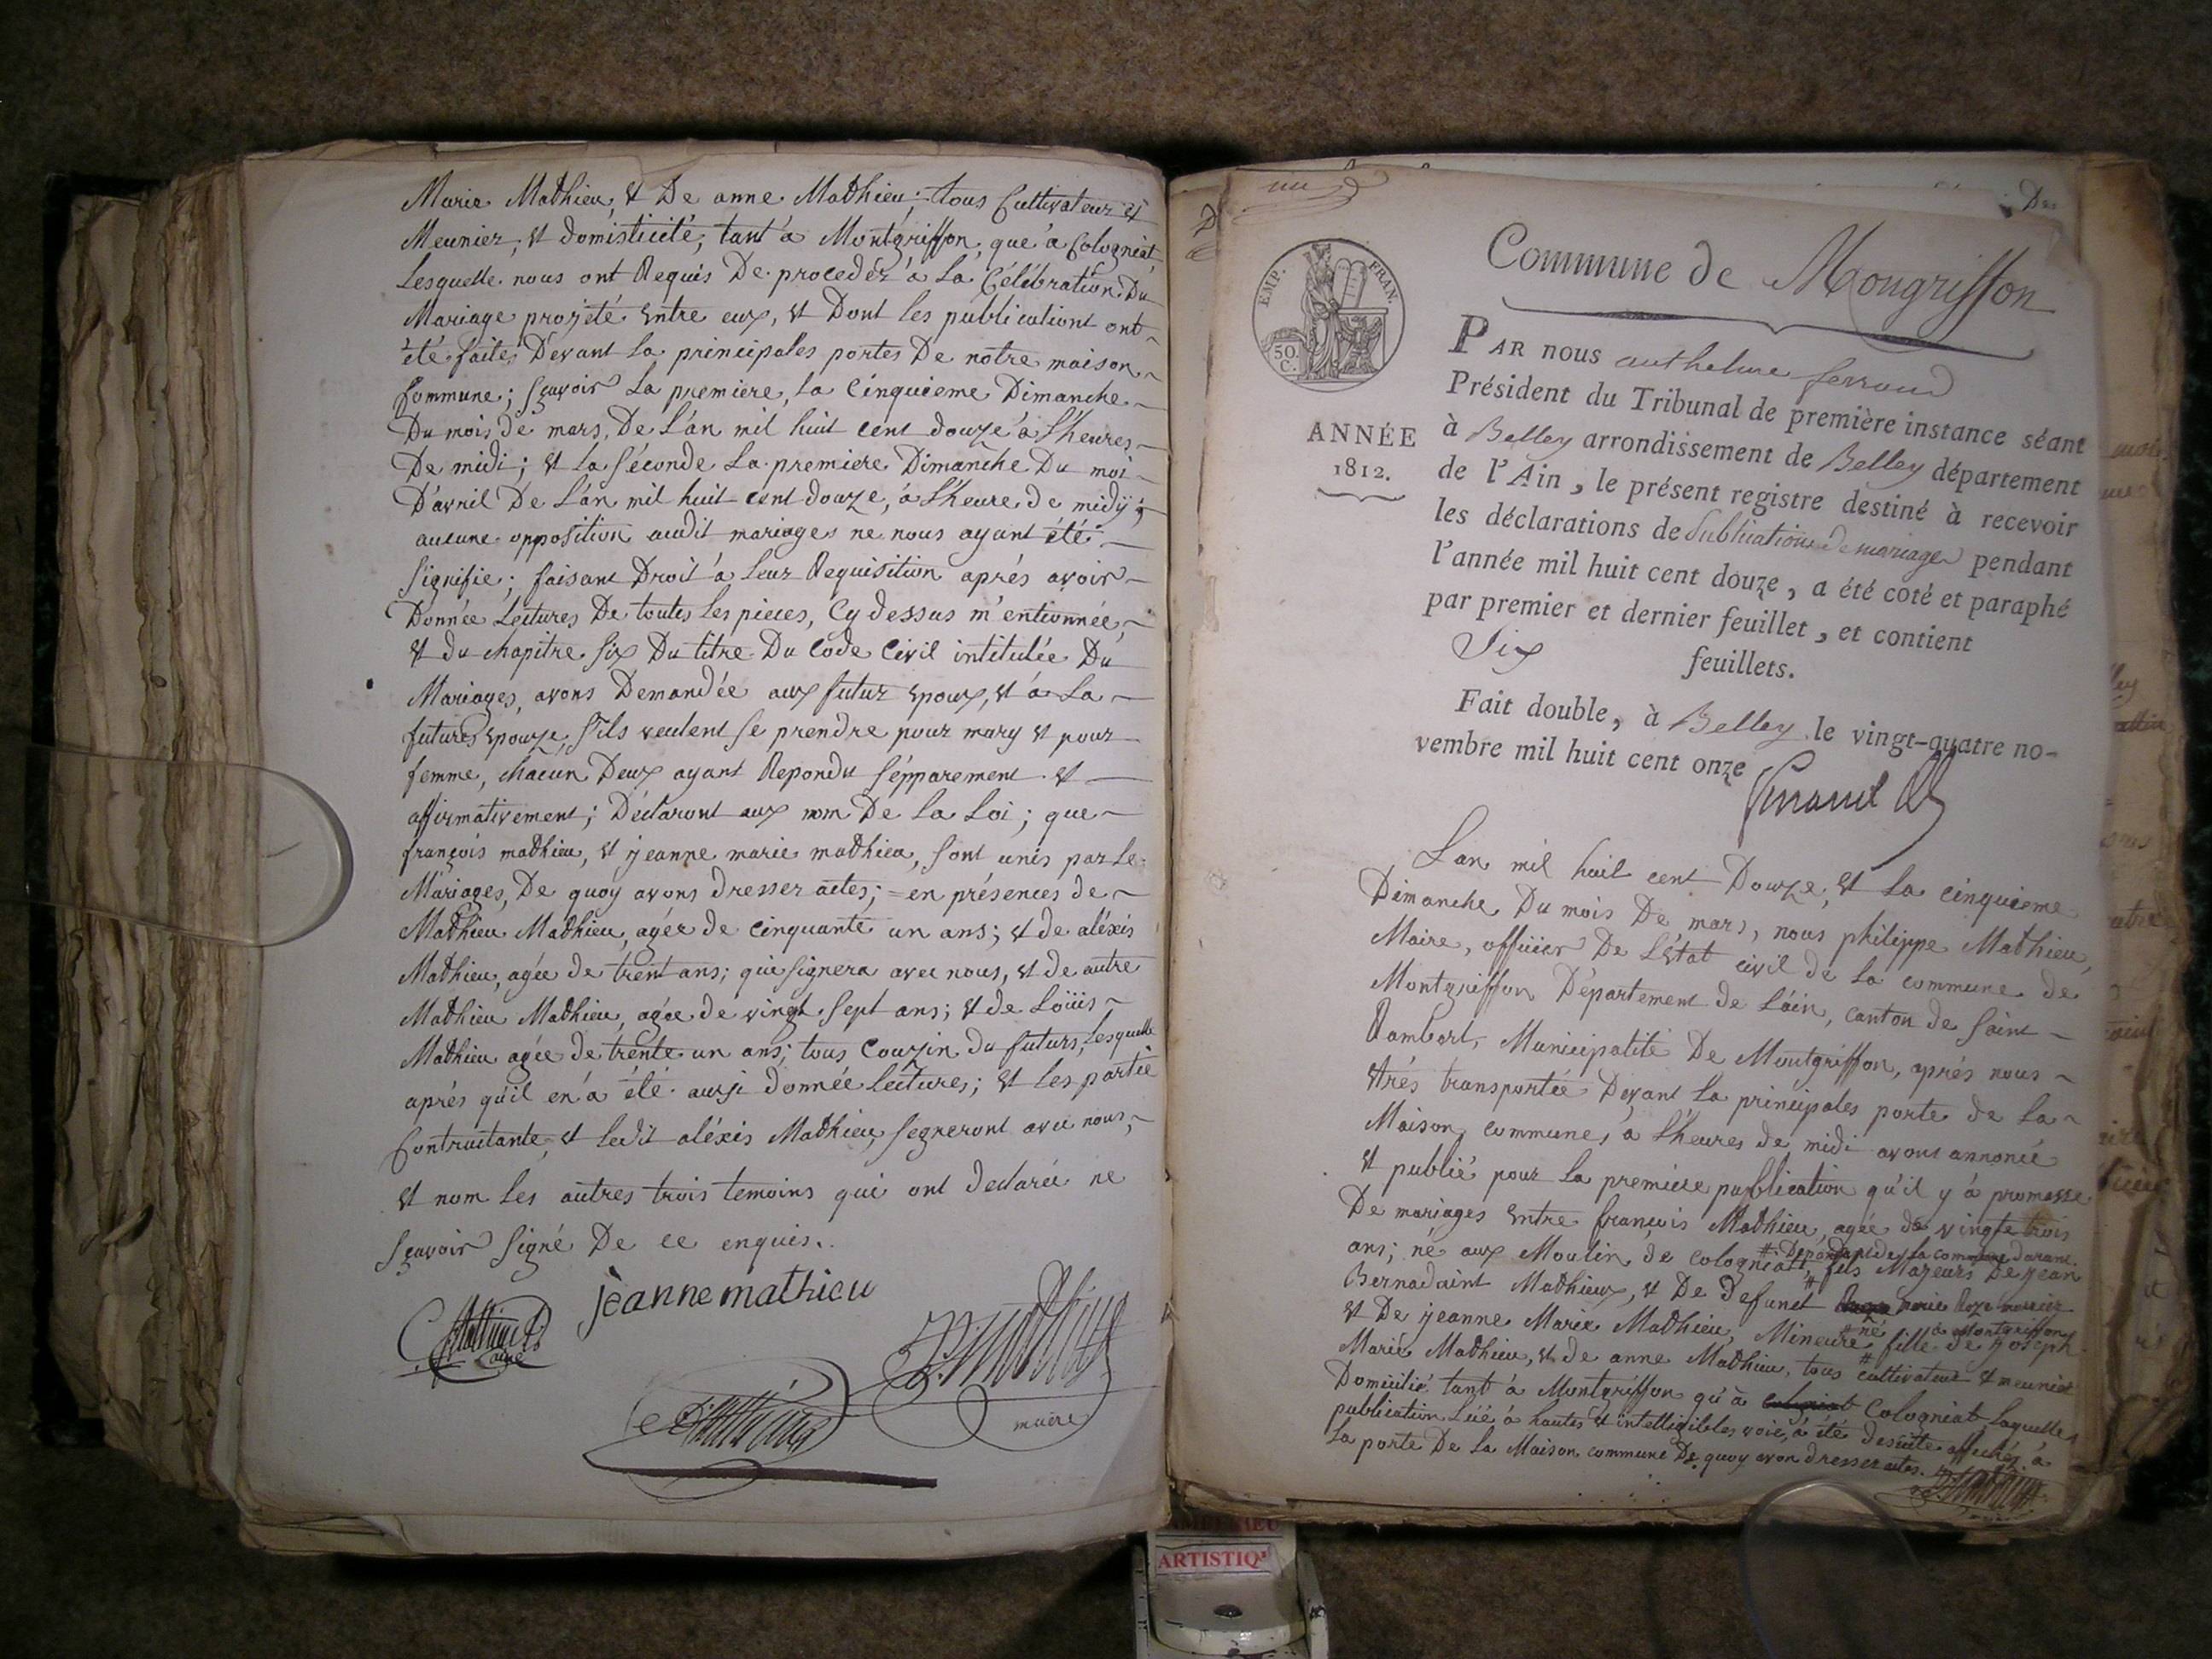 Marie Mathieu, et De anne Mathieu; tous Cultivateur et
Meunier, et domisticité, tant à Montgriffon, que à Cologniat,
Lesquelle nous ont Requis De procedér à La Célébration Du
Mariage projeté entre eux, et Dont les publicationt ont
été faites Devant la principales portes De notre maison
Commune; sçavoir la premiere, la Cinquieme Dimanche
Du mois de mars, De L'an mil huit cent douze à l'heures
De midi; et la séconde La premiere Dimanche Du moi
D'avril De L'an mil huit cent douze, à l'heure de midÿ;
aucune opposition audit mariages ne nous ayant été
signifie; faisant Droit à leur Requisition aprés avoir
Donnée Lectures De toutes les pieces, Cy dessus m'entionnée,
et du chapitre six Du titre Du Code Civil intitulée Du
Mariages, avons Demandée aux futur epoux, et à La
futures epouze, s'ils veulent se prendre pour mary et pour
femme, chacun Deux ayant Repondu sépparement et
affirmativement; Déclaront aux nom De La Loi; que
françois mathieu, et jeanne marie mathieu, sont unis par Le
Mariages, De quoy avons dresser actes; en présences de
Mathieu Mathieu, agée de cinquante un ans; et de aléxis
Mathieu, agée de trent ans; qui signera avec nous, et de autre
Mathieu Mathieu, agée de vingt sept ans; et de Loüis
Mathieu agée de trente un ans; tous Couzin du futurs, Lesquelle
aprés qu'il en a été aussi donnée lectures; et les partie
Contractante, et ledit aléxis Mathieu segneront avec nous,
et nom les autres trois temoins qui ont declarée ne
sçavoir signé De ce enquis.
jèanne mathieu
maire
EMP. FRAN.
50. C.
ANNÉE
1812.
Commune de Mongriffon
PAR nous anthelme ferrand
Président du Tribunal de première instance séant
à Belley arrondissement de Belley département
de l'Ain, le présent registre destiné à recevoir
les déclarations de Publications de mariages pendant
l'année mil huit cent douze, a été coté et paraphé
par premier et dernier feuillet, et contient
Six feuillets.
Fait double, à Belley le vingt-quatre no-
vembre mil huit cent onze
Lan mil huit cent Douze, et La cinquieme
Dimanche Du mois De mars, nous philippe Mathieu,
Maire, officier De L'état civil de la commune de
Montgriffon Département de L'ain, canton de saint
Rambert, Municipalité De Montgriffon, aprés nous
etrés transportée Devant la principales porte de la
Maison commune, à l'heures de midi avont annoncé
et publié pour la premiere publication qu'il y à promesse
De mariages entre françois Mathieu, agée de vingte trois
ans; né aux Moulin de cologniatt, fils Majeurs De jean
# Dependant de la commune darane.
Bernadaint Mathieux, et De defunct marie Roze
et De jeanne Marie Mathieu, Mineure fille de joseph
# né à Montgriffon
Marie Mathieu, et de anne Mathieu, tous cultivateur et meunier
Domicilié tant à Montgriffon qu'à Cologniat Laquelles
publication Lüé à hautes et intelligibles voie, à été desuite affichés à
la porte De la Maison commune De quoy avon dresser actes.
ARTISTIQ